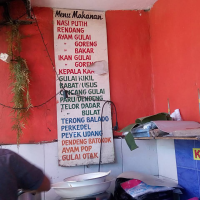 Menu Makanan
NASI PUTIH
RENDANG
AYAM GULAI
" GORENG
" BAKAR
IKAN GULAI
" GORENG
KEPALA KA
GULAI KIKIL
BABAT/USUS
CINCANG GULAI
PARU/DENDENG
TELOR DADAR
" BULAT
TERONG BALADO
PERKEDEL
PEYEK UDANG
DENDENG BATOKOK
AYAM POP
GULAI OTAK